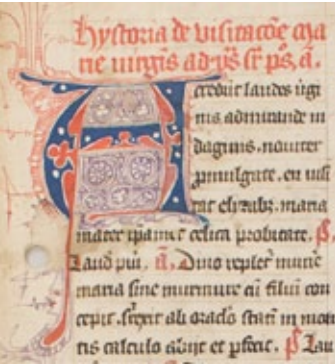 Hystoria de visitacōe ma
rie virgis ad vs̄ sr̄ ps̄. a.
Accedūt laudes v̄gi
nis admirande in
dagines . noviter
pmulgate . en visi
tat elizabꝫ . maria
mater ipam̄ celica probitate . ps̄
Laud pui . a. Divo repletꝰ munē
maria sine murmure xp̄i filiū con
cepit . surgēs ab oraclo statī in mon
tis calculo abijt et pfecit . ps̄ Lau